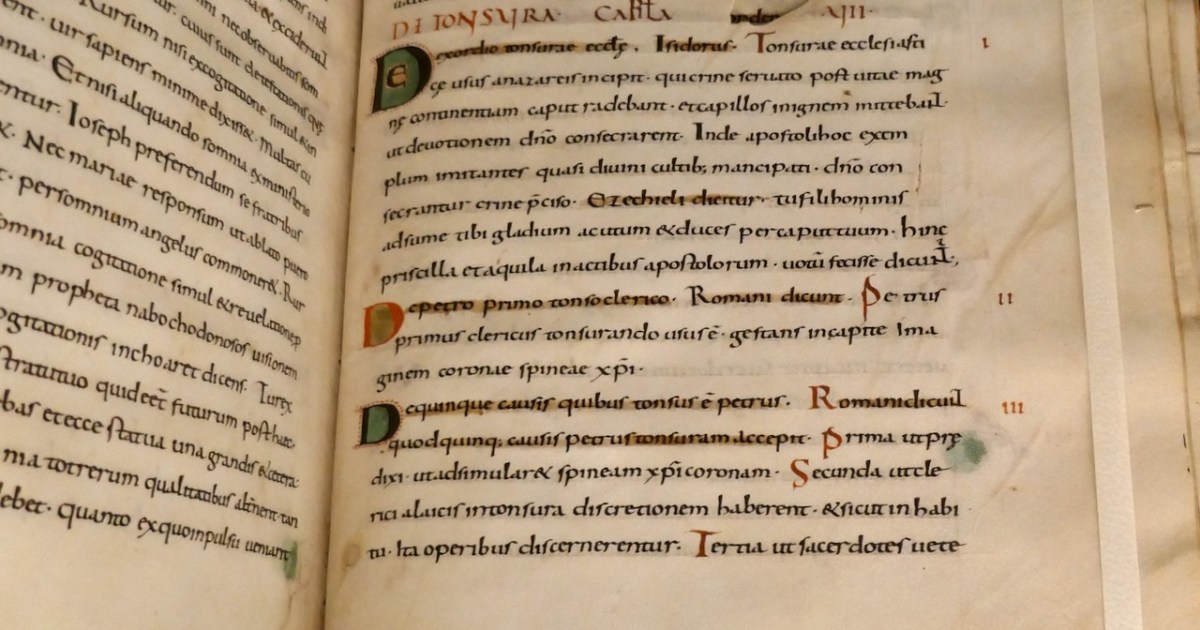 & excideruil
nt nec obseruabitis som
cuius sunt detestationis que
Rursum nisi excogitatione simul & an
ent. uir sapiens minime dixiss&. Multas cu
onia. Etnisi aliquando somnia ex ministerio
entur. Ioseph preferendum se fratribus
&. Nec mariae responsum ut ablato puero
t. per somnium angelus commoner&. Rur
omnia cogitatione simul & reuelationep
m propheta nabochodonosos uisionem
ogitationis inchoaret dicens. Tu rex
stratu tuo quid eēt futurum post haec.
bas et ecce statua una grandis & cetera.
ma tot rerum qualitatibus alt̄nent. tan
debet. quanto ex quo inpulsu ueniant
DE TONSURA. CAPITLA VII.
De exordio tonsurae eccłę. Isidorus. Tonsurae ecclesiasti I
cę usus a nazareis incipit. qui crine seruato post uitae mag
nę continentiam caput radebant. et capillos in ignem mittebaɴᴛ.
ut deuotionem dn̄o consecrarent. Inde apostoli hoc exem
plum imitantes quasi diuini cultib; mancipati. dn̄o con
secrantur crine p̄ciso. Ezechieli dicitur. tu fili hominis
adsume tibi gladium acutum & duces per caput tuum. hinc
priscilla et aquila in actibus apostolorum. uotū fecisse dicuɴᴛ;
De petro primo tonso clerico. Romani dicunt. Petrus II
primus clericus tonsurando usus ē. gestans in capite Ima
ginem coronae spineae xp̄i.
De quinque causis quibus tonsus ē petrus. Romani dicuɴᴛ III
quod quinq; causis petrus tonsuram accepit. Prima ut prę
dixi. ut adsimular& spineam xp̄i coronam. Secunda ut cle
rici a laicis in tonsura discretionem haberent. & sicut in habi
tu. Ita operibus discernerentur. Tertia ut sacerdotes uete